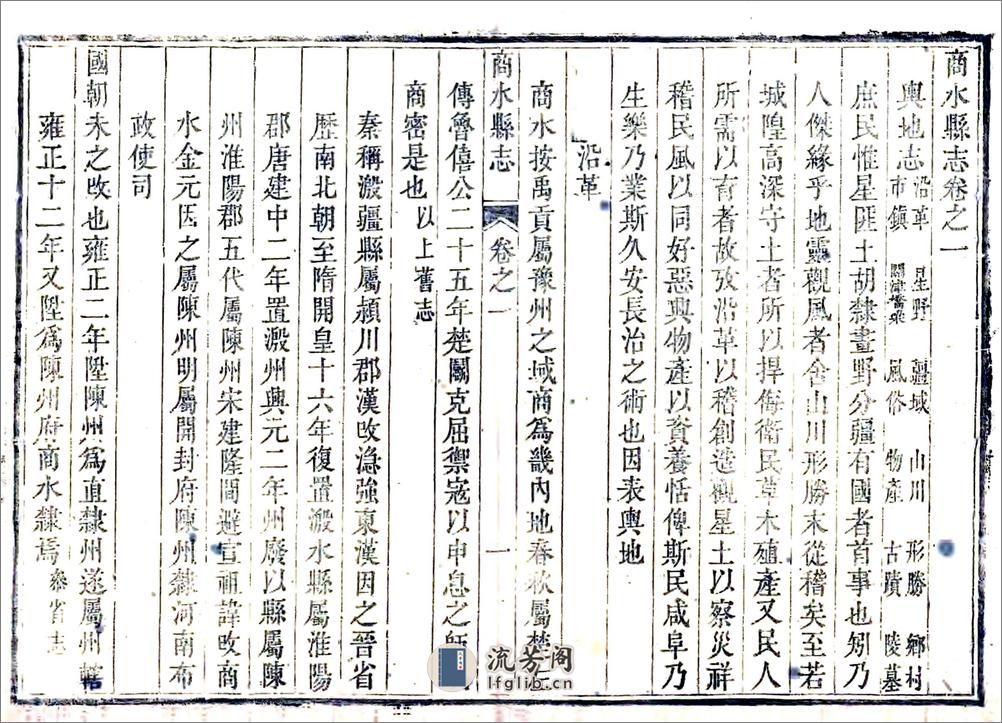 商水縣志卷之一
輿地志 沿革 星野 疆域 山川 形勝 鄉村
市鎮 關津 風俗 物產 古蹟 陵墓
庶民惟星匪土胡隸畫野分疆有國者首事也矧乃
人傑緣乎地靈觀風者舍山川形勝末從稽矣至若
城隍高深守土者所以捍侮衛民草木殖產又民人
所需以育者故攷沿革以稽創造觀星土以察災祥
稽民風以同好惡興物產以資養恬俾斯民咸阜乃
生樂乃業斯久安長治之術也因表輿地
沿革
商水按禹貢屬豫州之域商為畿內地春秋屬楚
商水縣志 卷之一 一
傳魯僖公二十五年楚鬭克屈禦寇以申息之師
商密是也 以上舊志
秦稱溵疆縣屬潁川郡漢改㶏強東漢因之晉省
歷南北朝至隋開皇十六年復置溵水縣屬淮陽
郡唐建中二年置溵州興元二年州廢以縣屬陳
州淮陽郡五代屬陳州宋建隆間避宣祖諱改商
水金元因之屬陳州明屬開封府陳州隸河南布
政使司
國朝未之改也雍正二年陞陳州為直隸州遂屬州轄
雍正十二年又陞為陳州府商水隸焉 叅省志
流芳阁
lfglib.cn